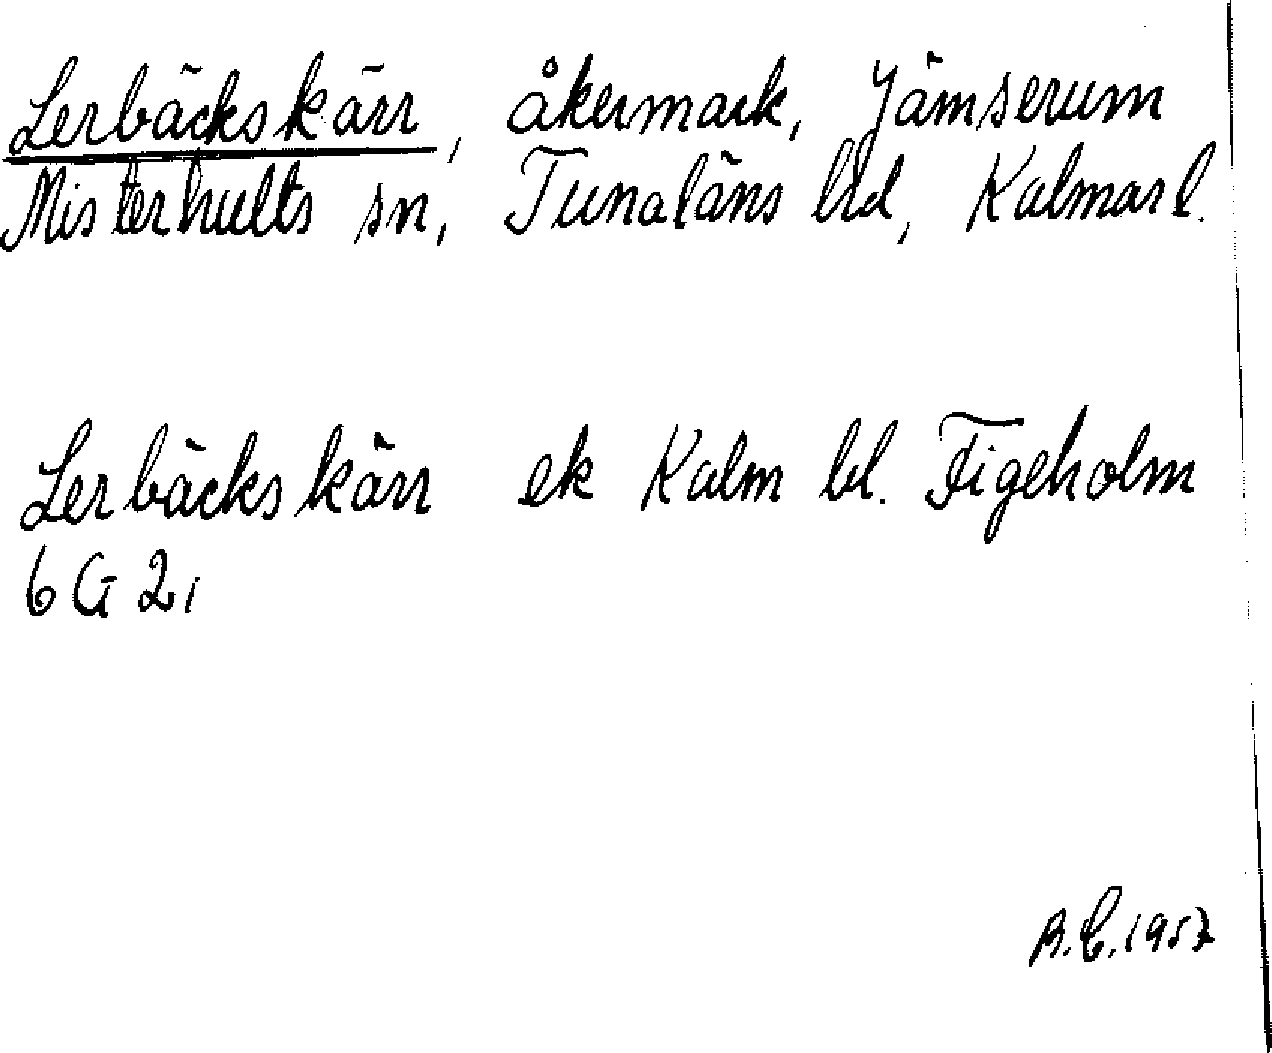 Lerbäckskärr, åkermark, Jämserum
Misterhults sn, Tunaläns hd, Kalmar l.
Lerbäckskärr ek Kalm bl. Figeholm
6 G 2i
B.C. 1957